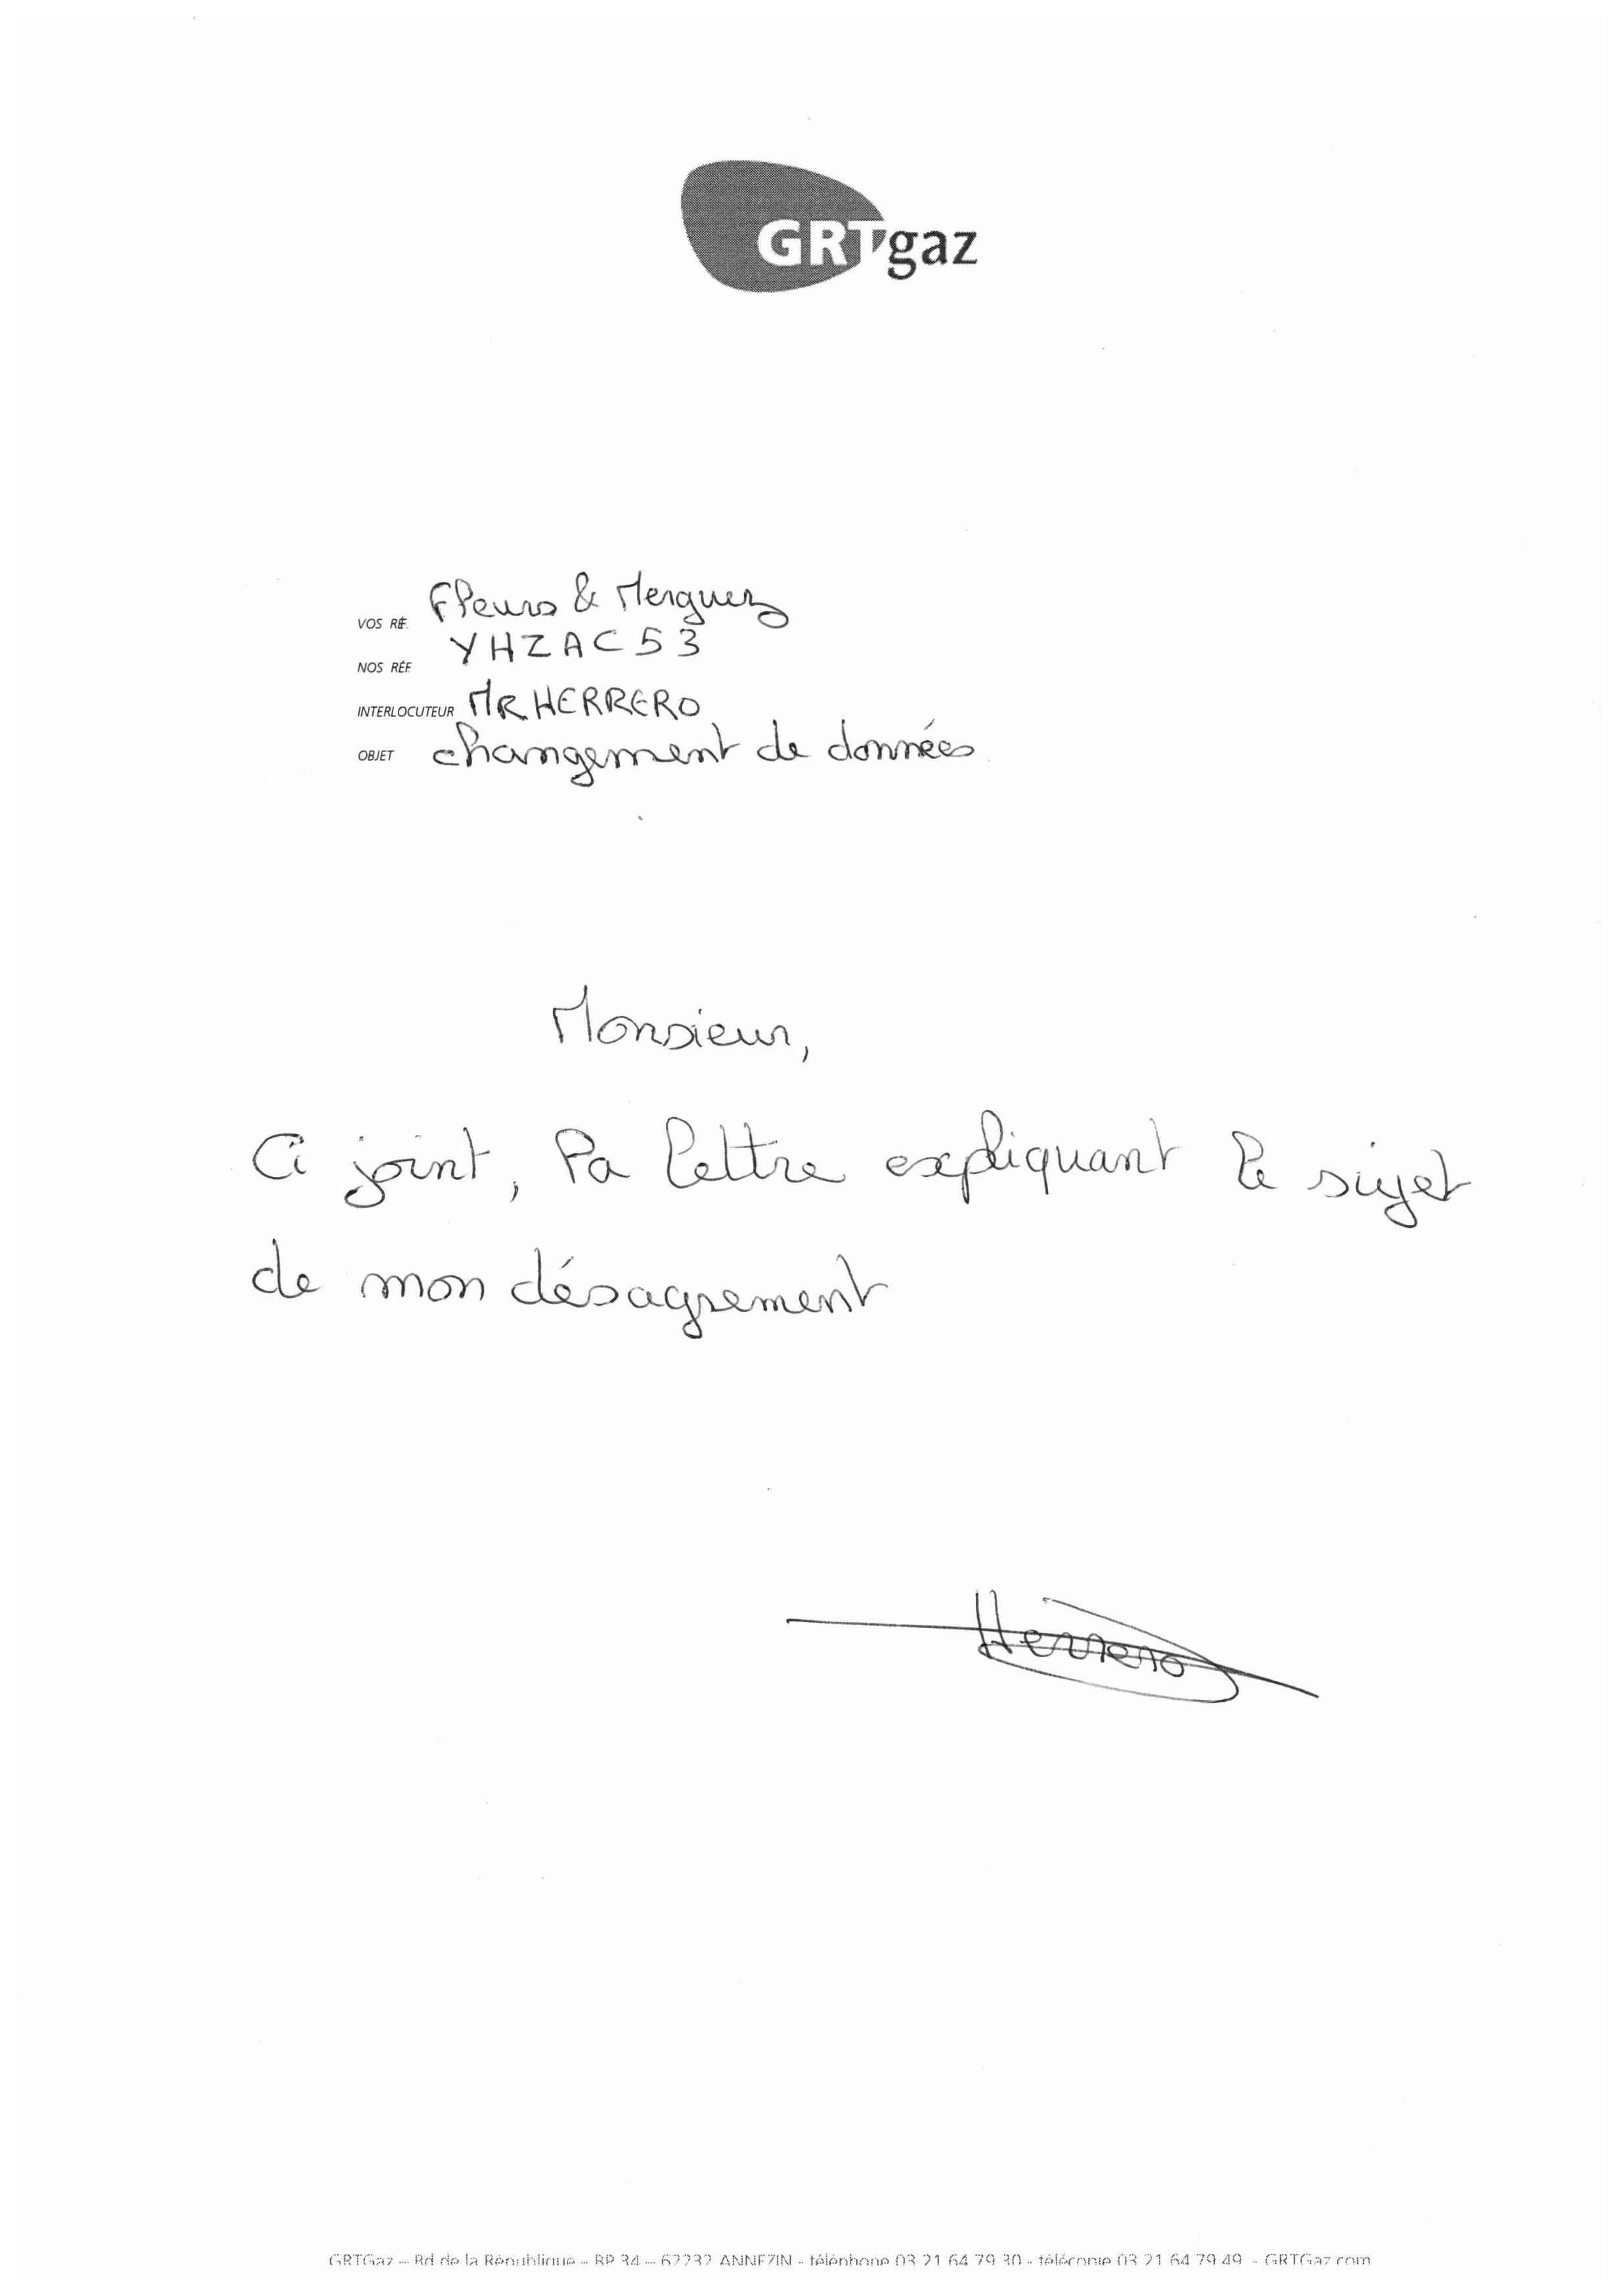 GRTgaz
VOS RÉF. Fleurs & Merguez
NOS RÉF YHZAC53
INTERLOCUTEUR MR HERRERO
OBJET changement de données
Monsieur,
Ci joint, la lettre expliquant le sujet
de mon désagrement
Herrero
GRTGaz – Bd de la République – BP 34 – 62232 ANNEZIN - téléphone 03 21 64 79 30 - télécopie 03 21 64 79 49 - GRTGaz.com